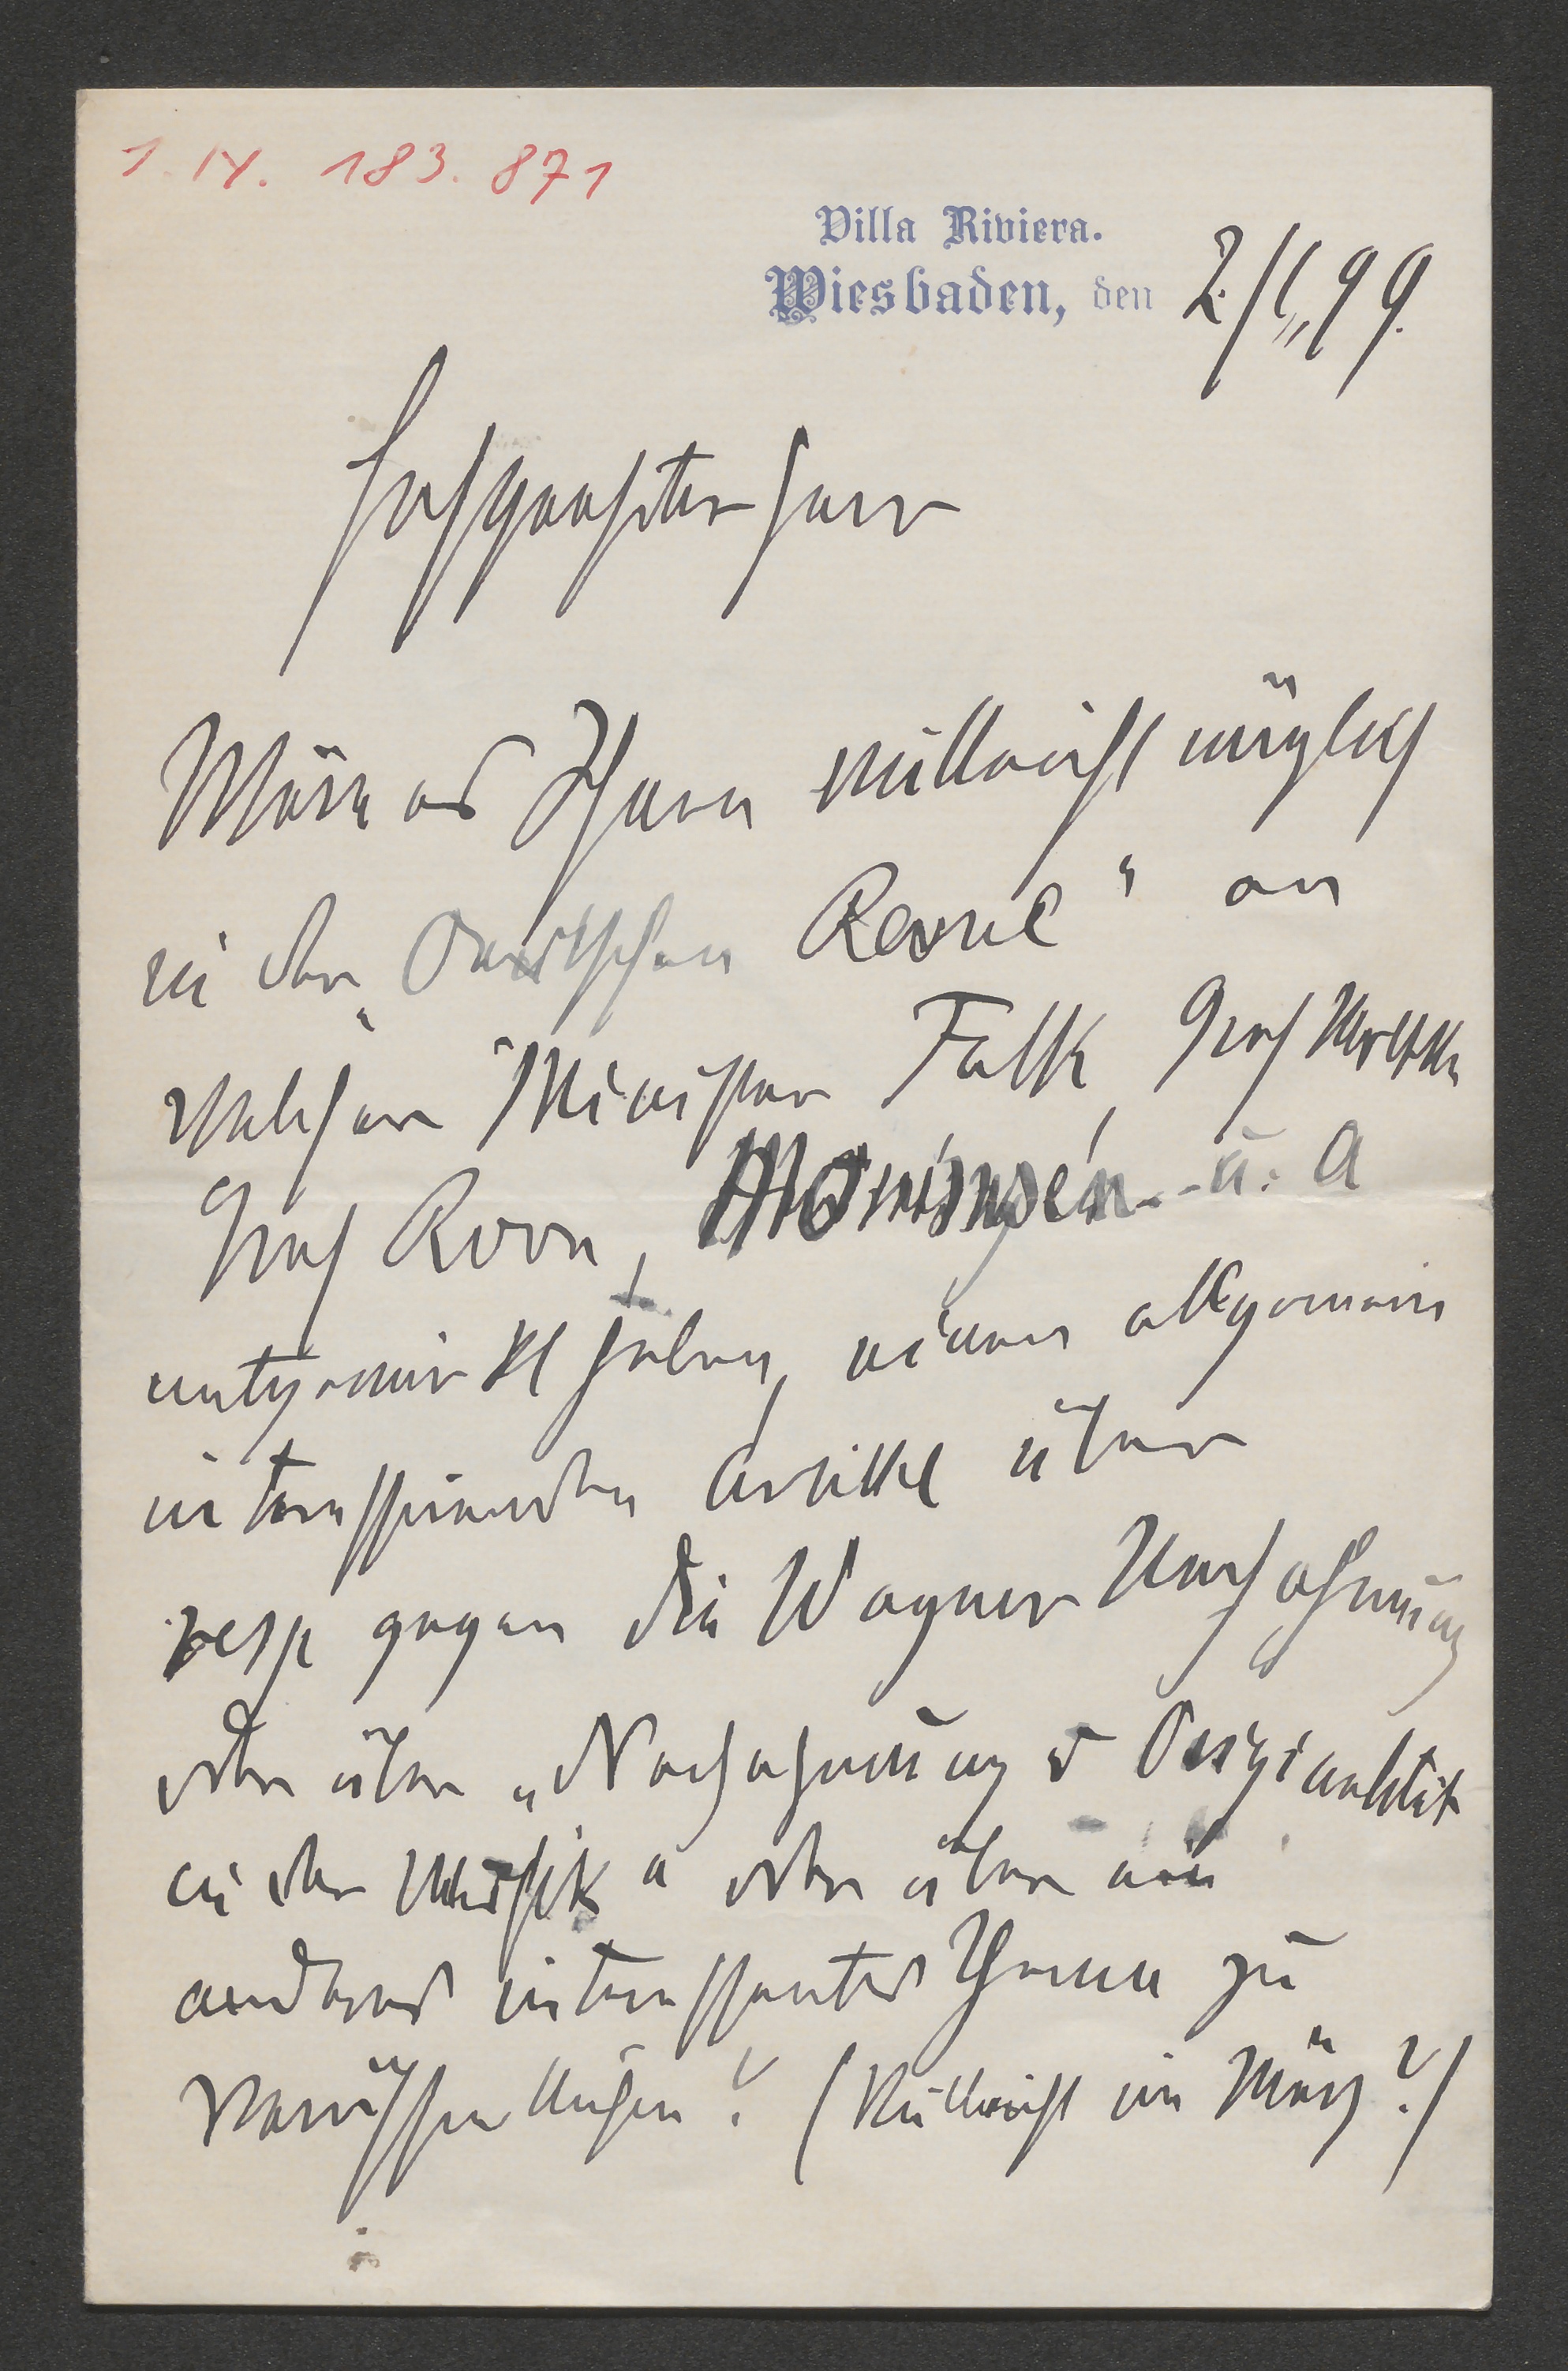 1. IX. 183.871
Villa Riviera.
Wiesbaden, den 2/I, 99.
Hochgeehrter Herr
Wäre es Ihnen vielleicht möglich
in der „Deutschen Revue" an
welcher Minister Falk, Graf Moltke
Graf Roon, Mommsen u. A
mitgewirkt haben, einen allgemein
interessirenden Artikel über
resp gegen die Wagner Nachahmung
oder über „Nachahmung u Originalität
in der Musik" oder über ein
anderes interessantes Thema zu
veröffentlichen? (Vielleicht im März?)